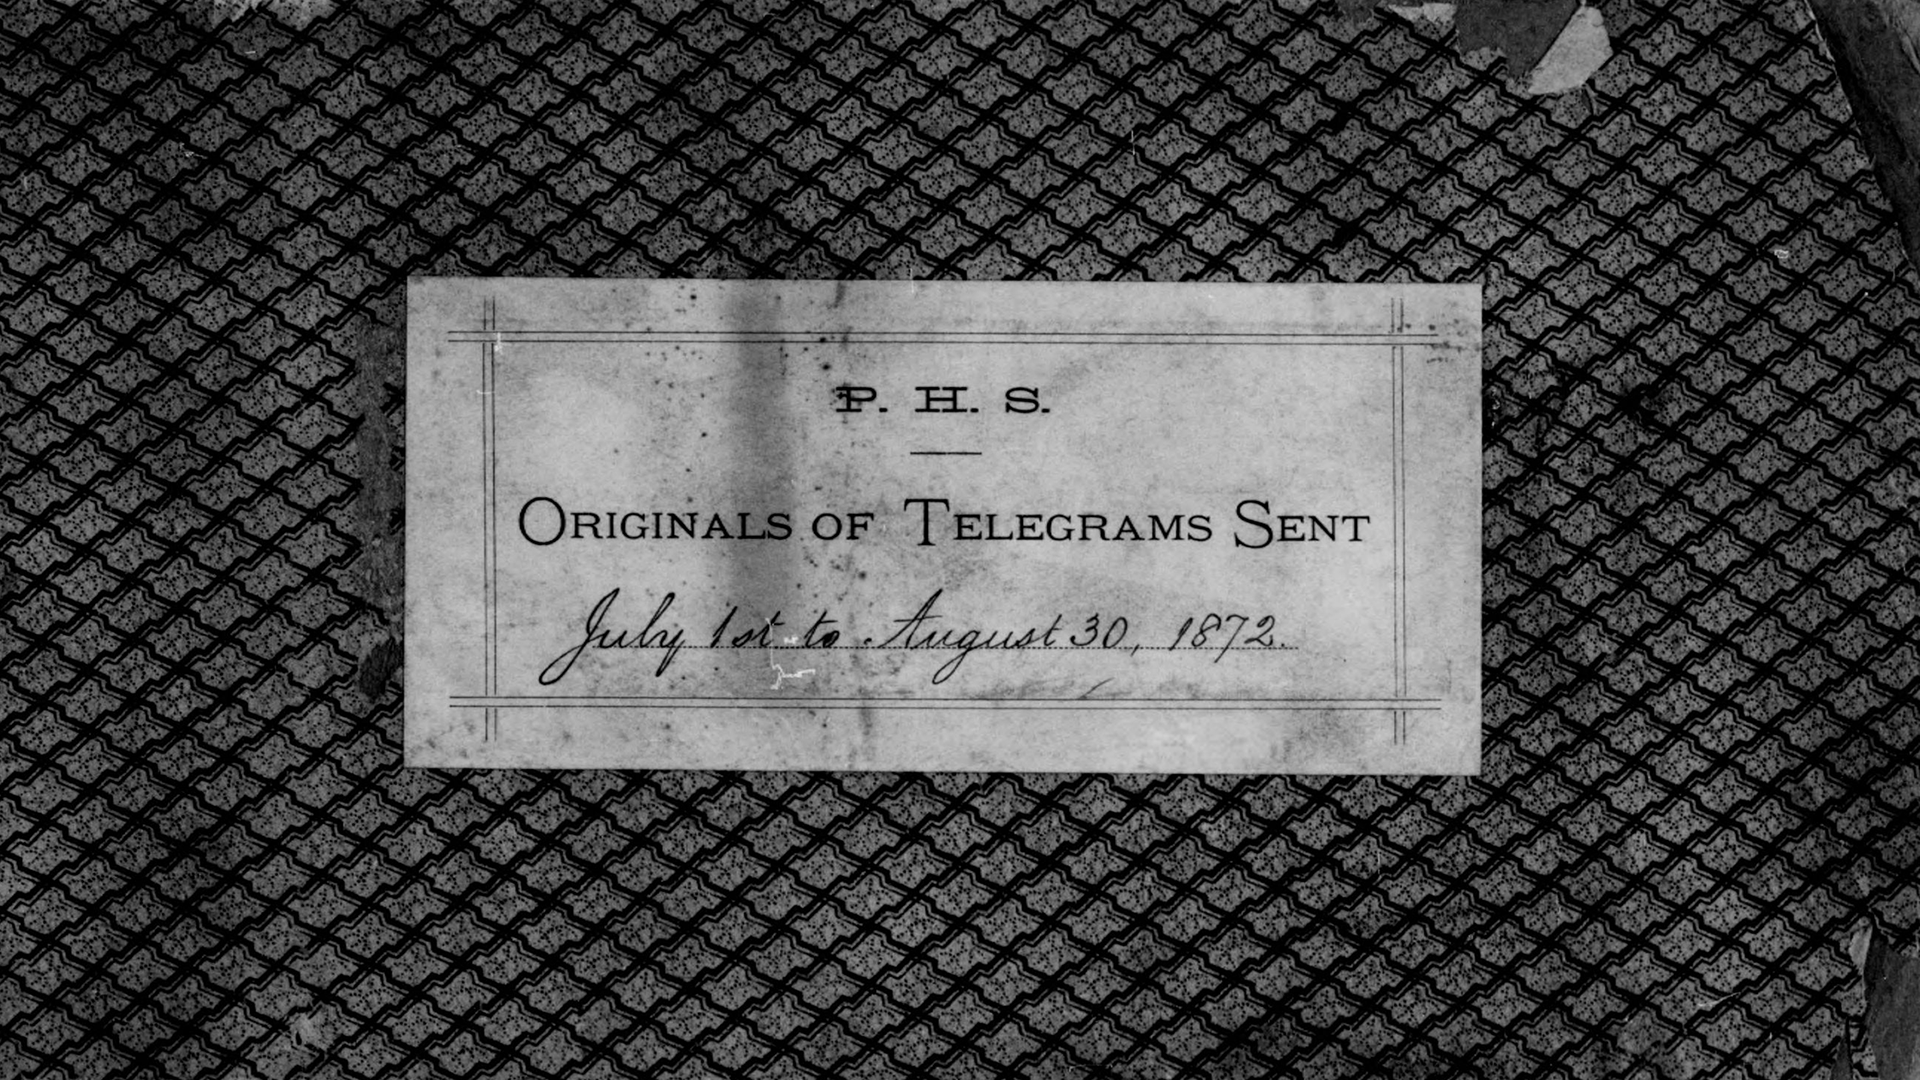 P. H. S.
Originals of Telegrams Sent
July 1st to August 30, 1872.